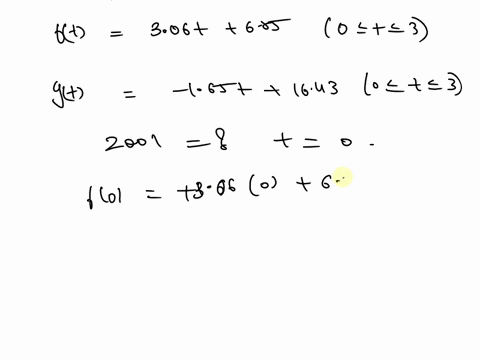 f(t) = 3.06t + 6.85 (0 ≤ t ≤ 3)
g(t) = -1.85t + 16.43 (0 ≤ t ≤ 3)
2001 = t = 0.
f(0) = +3.06 (0) + 6.